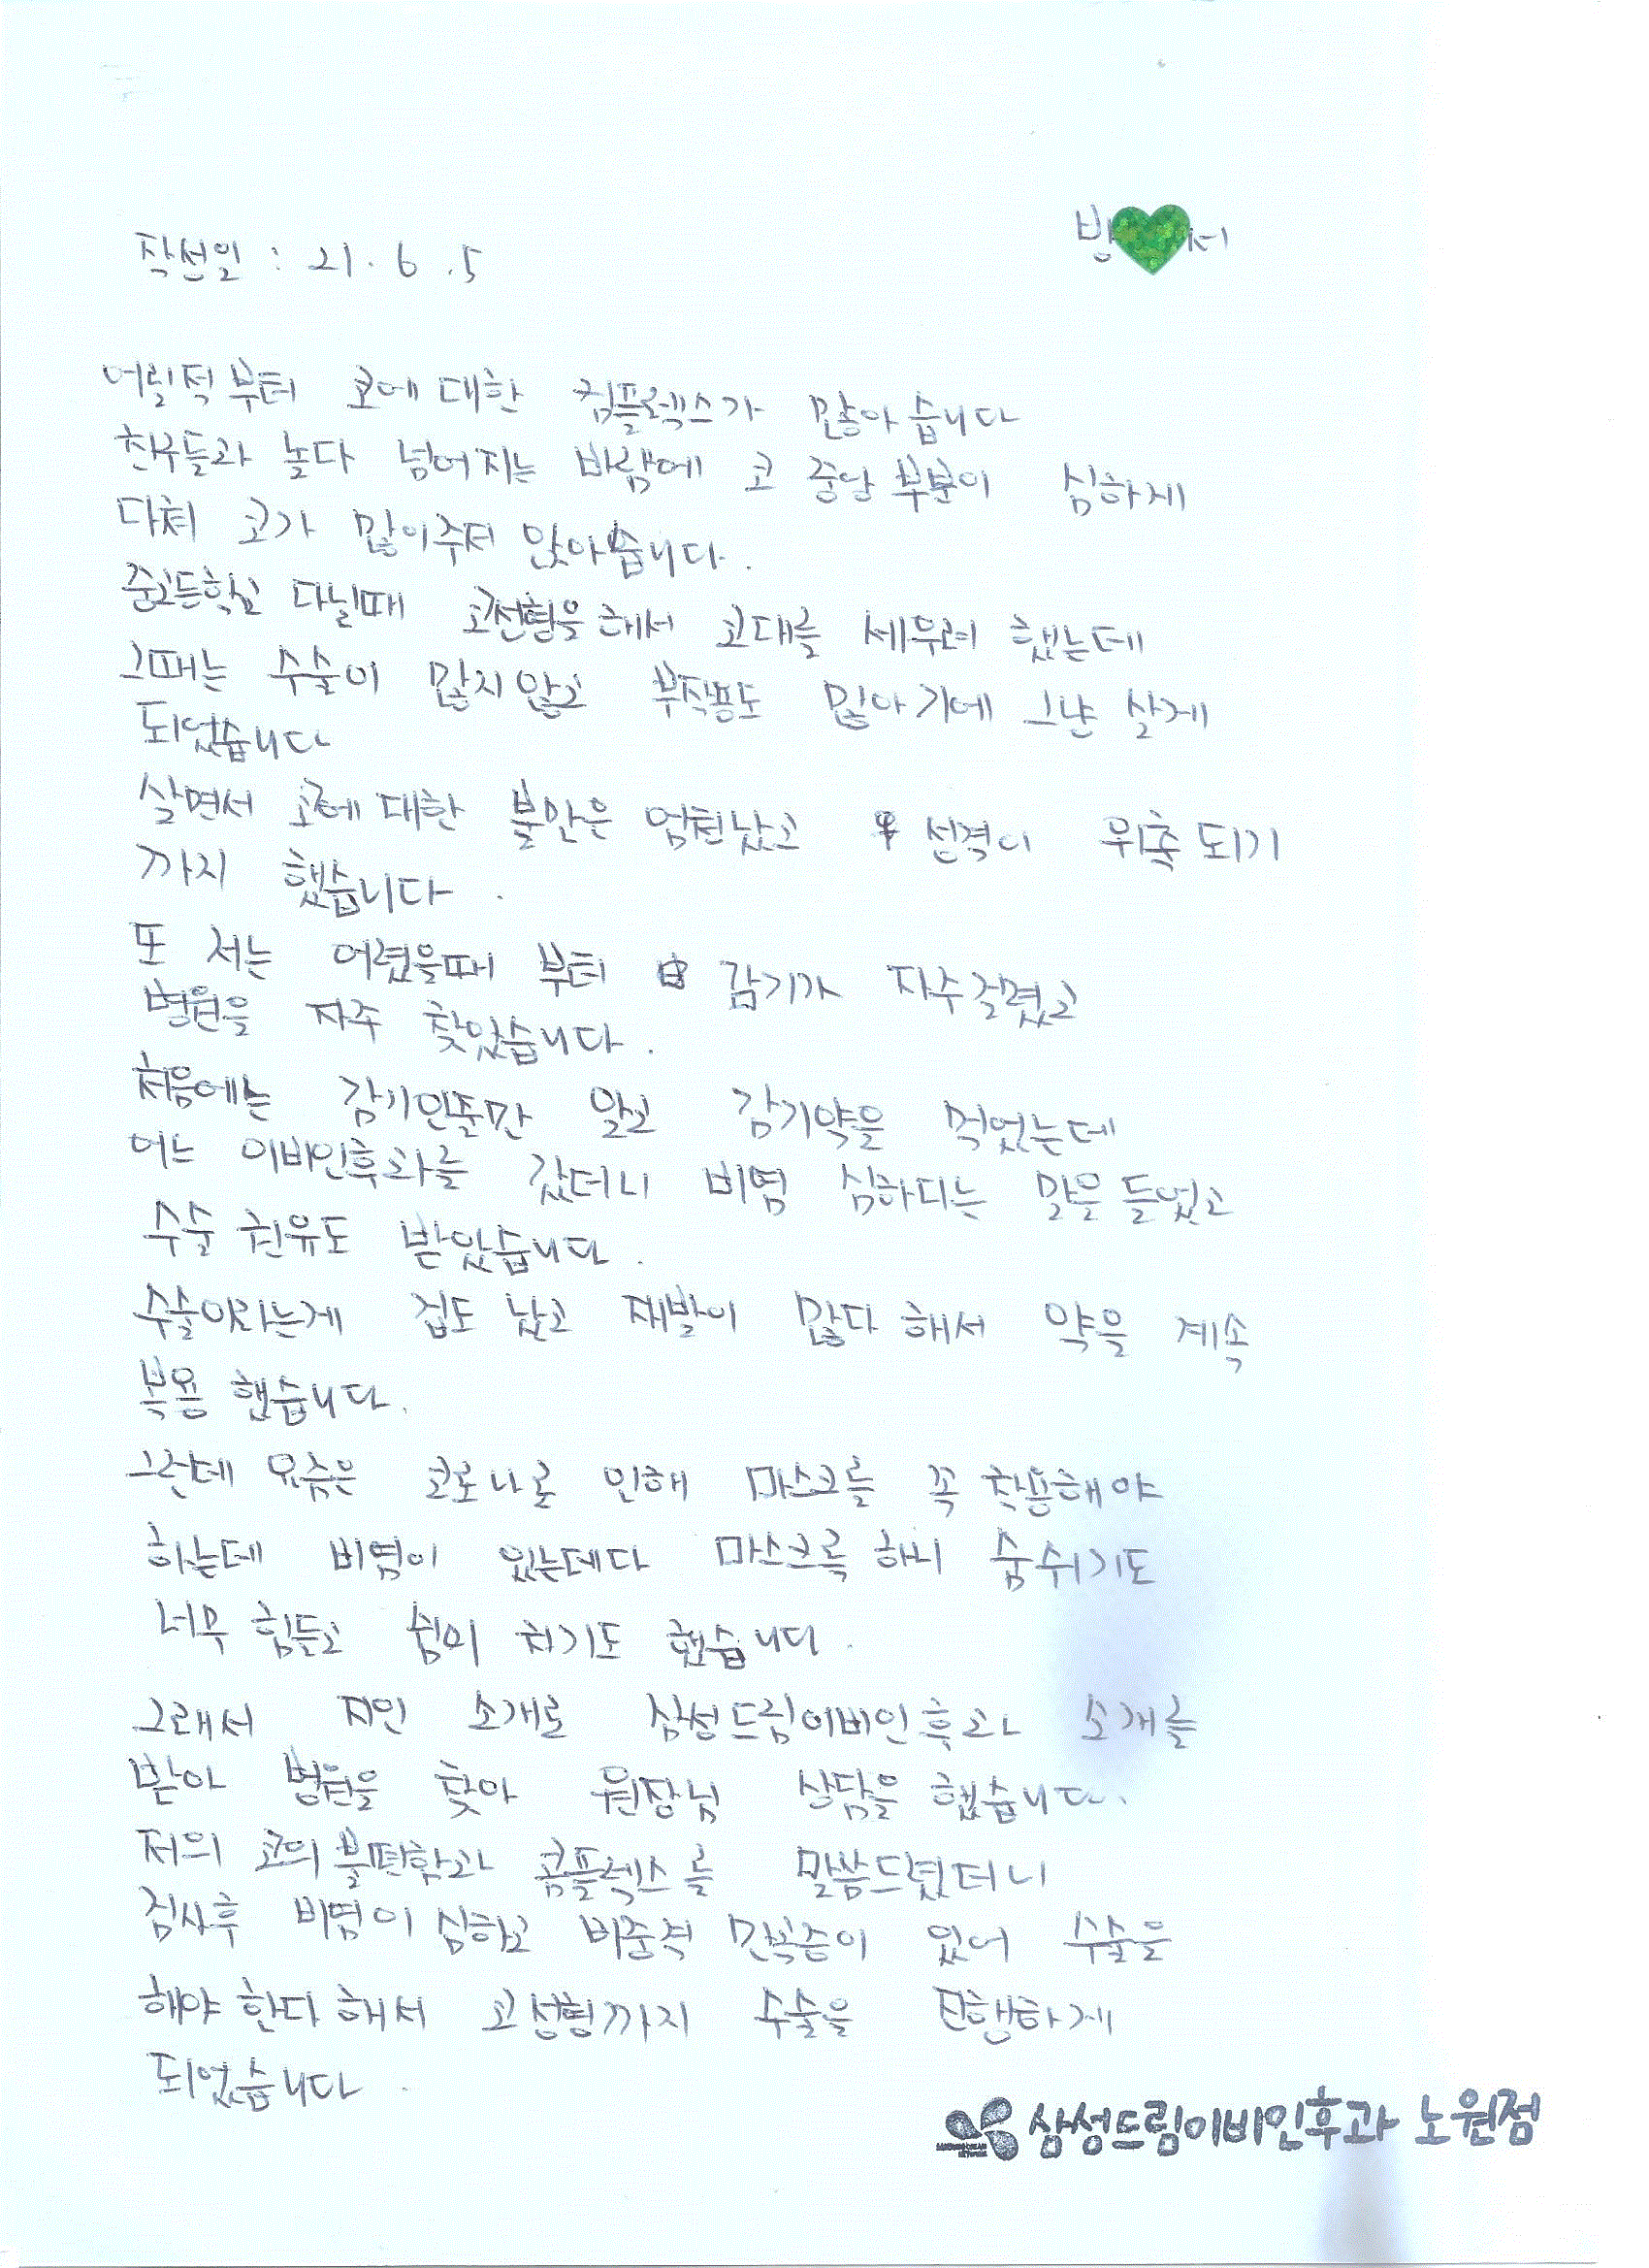 작성일 : 21. 6. 5
방 서
어릴적부터 코에대한 컴플렉스가 많아습니다
친구들과 놀다 넘어지는 바람에 코 중앙 부분이 심하게
다쳐 코가 많이주저 앉아습니다.
중고등학교 다닐때 코성형을해서 코대를 세우려 했는데
그때는 수술이 많지않고 부작용도 많아기에 그냥 살게
되었습니다
살면서 코에대한 불만은 엄천났고 성격이 위축되기
까지 했습니다.
또 저는 어렸을때 부터 감기가 자주걸렸고
병원을 자주 찾았습니다.
처음에는 감기인줄만 알고 감기약을 먹었는데
어느 이비인후과를 갔더니 비염 심하다는 말을들었고
수술 권유도 받았습니다.
수술이라는게 겁도 났고 재발이 많다해서 약을 계속
복용했습니다.
그런데 요즘은 코로나로 인해 마스크를 꼭 착용해야
하는데 비염이 있는데다 마스크를 하니 숨쉬기도
너무 힘들고 쉼이 차기도 했습니다.
그래서 지인 소개로 삼성드림이비인후과 소개를
받아 병원을 찾아 원장님 상담을 했습니다.
저의 코의불편함과 콤플렉스를 말씀드렸더니
검사후 비염이심하고 비중격 만곡증이 있어 수술을
해야한다해서 코성형까지 수술을 진행하게
되었습니다.
삼성드림이비인후과 노원점